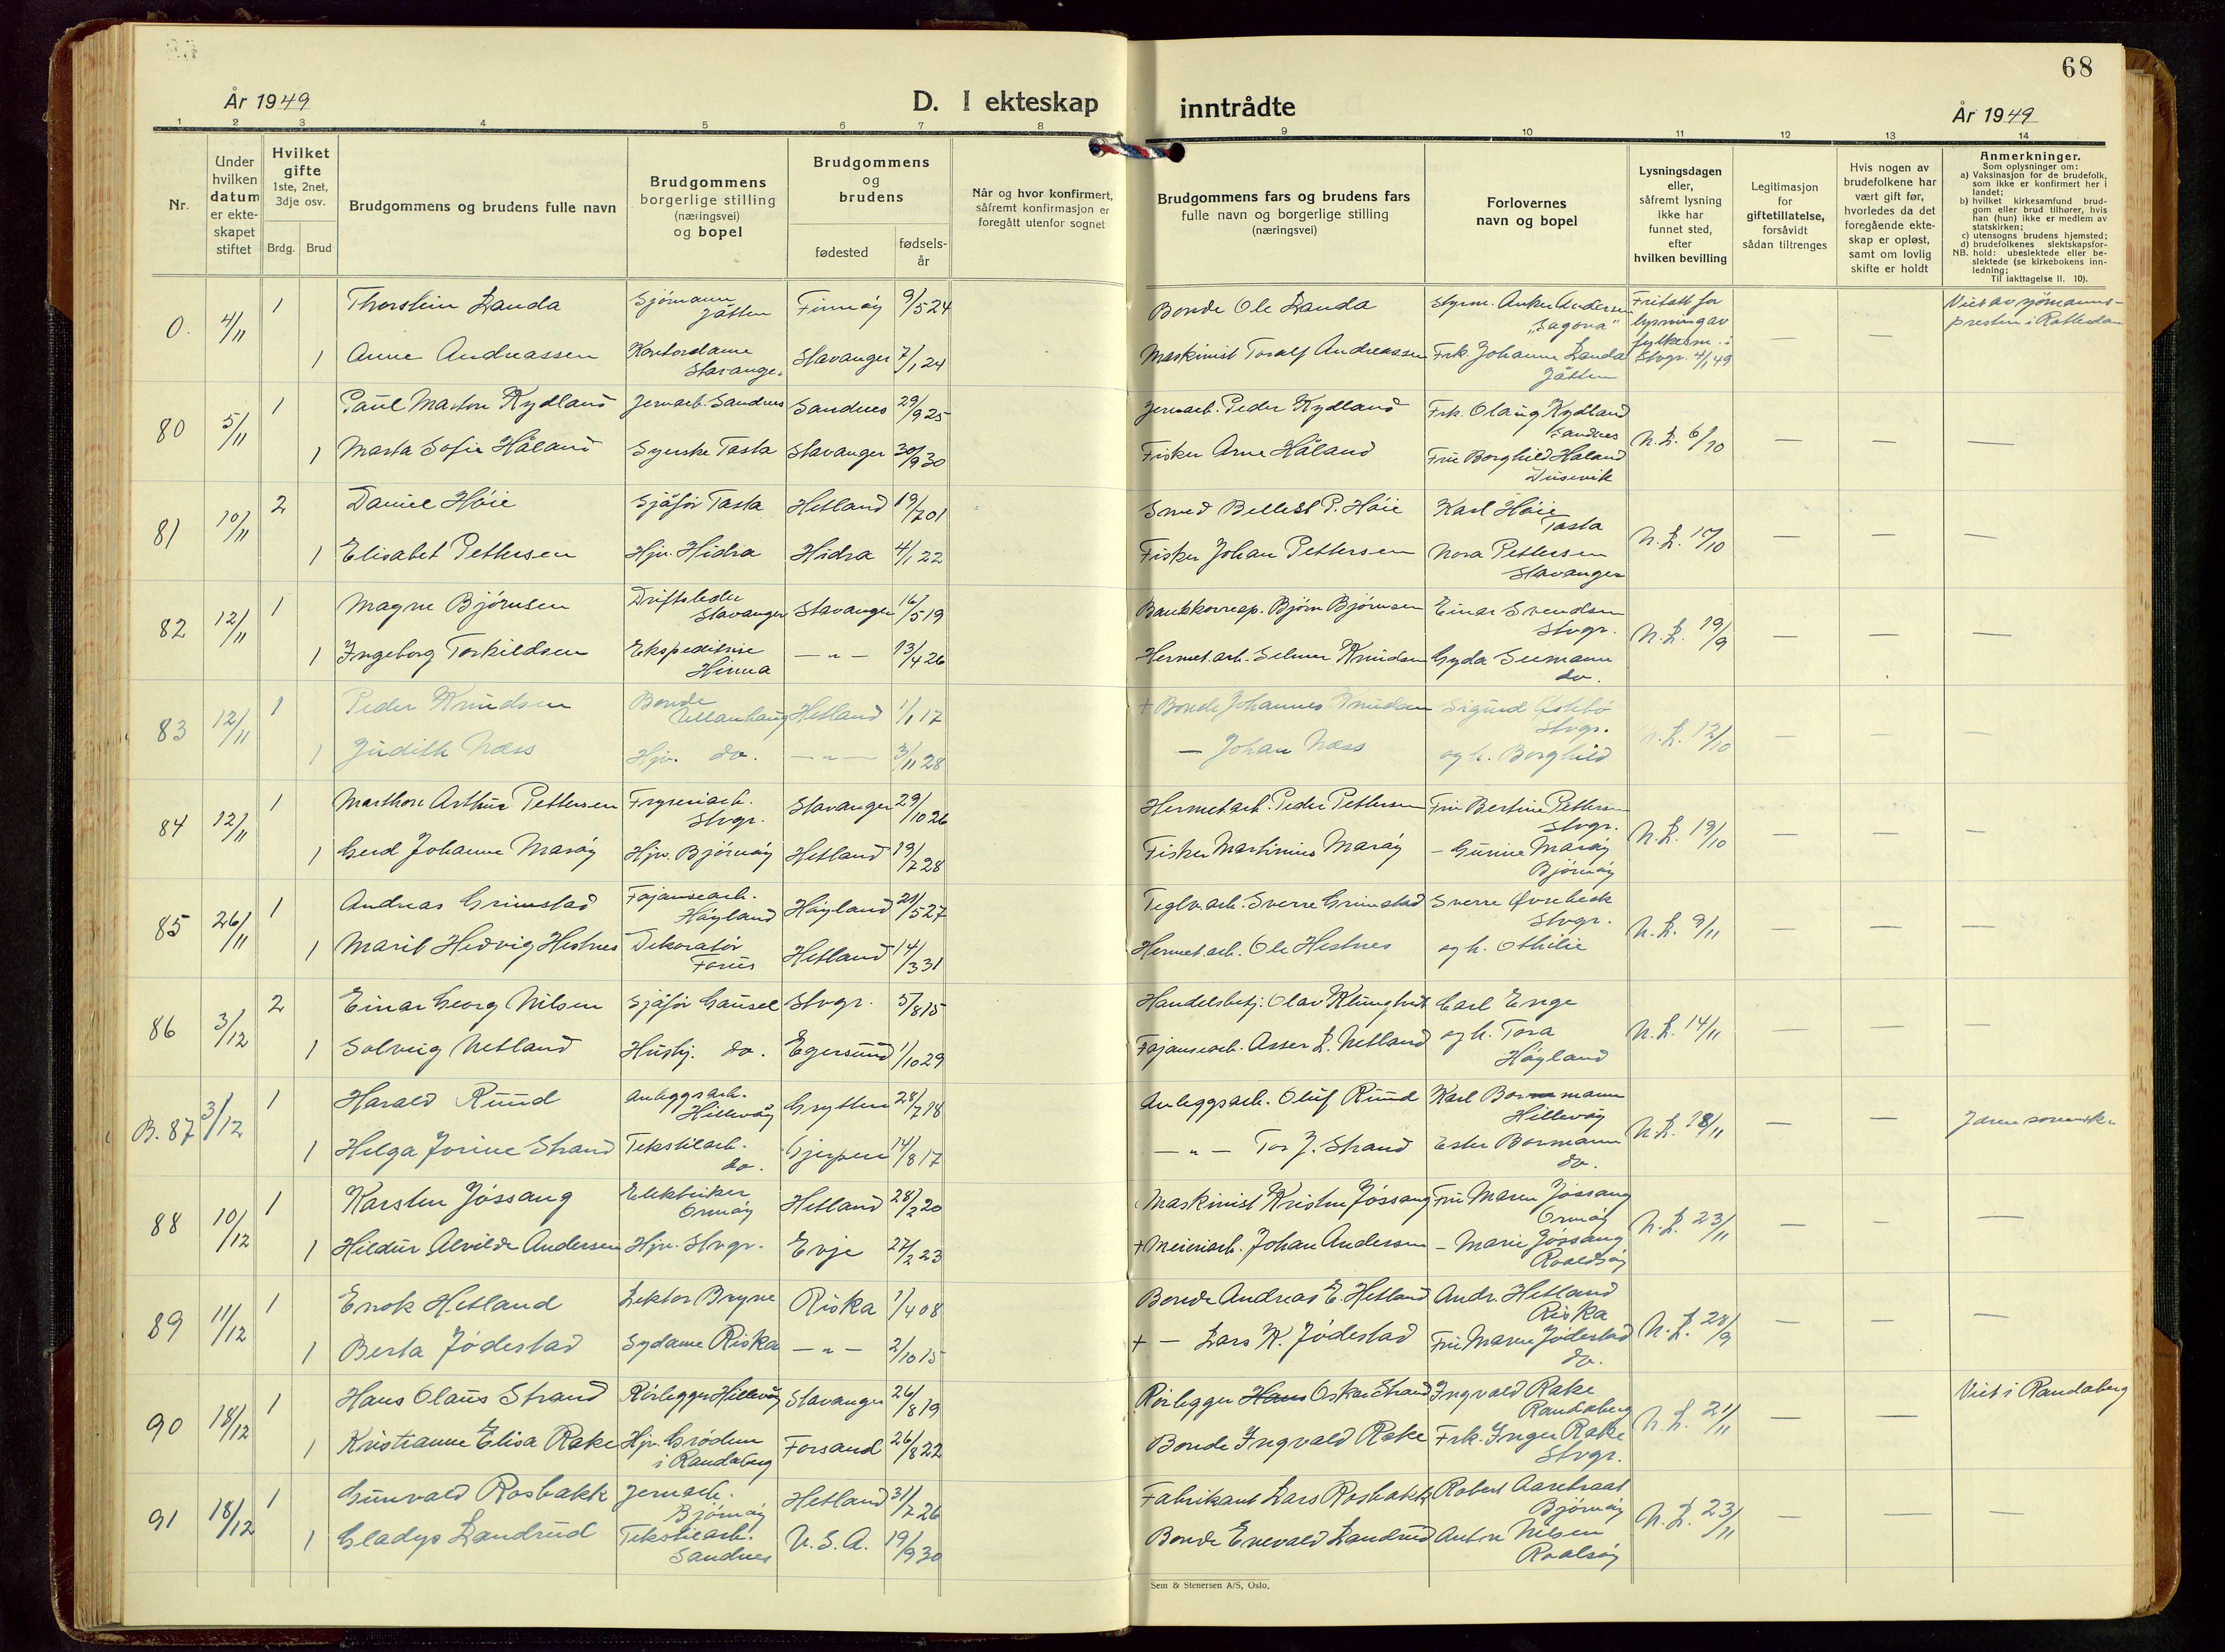 År 1949
D. I ekteskap inntrådte
68
År 1949
1 2 3 4 5 6 7 8 9 10 11 12 13 14
Nr.
Under hvilken datum er ekteskapet stiftet
Hvilket gifte 1ste, 2net, 3dje osv.
Brdg. Brud
Brudgommens og brudens fulle navn
Brudgommens borgerlige stilling (næringsvei) og bopel
Brudgommens og brudens
fødested fødselsår
Når og hvor konfirmert, såfremt konfirmasjon er foregått utenfor sognet
Brudgommens fars og brudens fars fulle navn og borgerlige stilling (næringsvei)
Forlovernes navn og bopel
Lysningsdagen eller, såfremt lysning ikke har funnet sted, efter hvilken bevilling
Legitimasjon for giftetillatelse, forsåvidt sådan tiltrenges
Hvis nogen av brudefolkene har vært gift før, hvorledes da det foregående ekteskap er opløst, samt om lovlig skifte er holdt
Anmerkninger.
Som oplysninger om:
a) Vaksinasjon for de brudefolk, som ikke er konfirmert her i landet;
b) hvilket kirkesamfund brudgom eller brud tilhører, hvis han (hun) ikke er medlem av statskirken;
c) utensogns brudens hjemsted;
d) brudefolkenes slektskapsforhold: ubeslektede eller beslektede (se kirkebokens innledning;
NB. Til iakttagelse II. 10).
0. 4/11 1 Thorstein Landa Sjömann Jåtten Finnöy 9/5 24 Bonde Ole Landa Styrm. Anker Andersen "Sagona" Fritatt for lysning av fylkesm. i Stvgr. 4/1 49 — — Viet av sjömanns-presten i Rotterdam
1 Anne Andreassen Kontordame Stavanger Stavanger 7/1 24 Maskinist Toralf Andreassen Frk. Johanne Landa Jåtten
80 5/11 1 Paul Marton Kydland Jernarb. Sandnes Sandnes 29/9 25 Jernarb. Peder Kydland Frk. Olaug Kydland Sandnes N. L. 6/10 — — —
1 Marta Sofie Håland Syerske Tasta Stavanger 30/9 30 Fisker Arne Håland Fru Borghild Håland Dusevik
81 10/11 2 Daniel Höie Sjåför Tasta Hetland 19/7 01 Smed Bellest P. Höie Karl Höie Tasta N. L. 10/10 — — —
1 Elisabet Pettersen Hjv. Hidra Hidra 4/1 22 Fisker Johan Pettersen Nora Pettersen Stavanger
82 12/11 1 Magne Björnsen Driftsleder Stavanger Stavanger 16/5 19 Bankkorresp. Björn Björnsen Einar Svendsen Stvgr. N. L. 19/9 — — —
1 Ingeborg Torkildsen Ekspeditrise Hinna — " — 13/4 26 Hermet.arb. Selmer Knudsen Gyda Seemann do.
83 12/11 1 Peder Knudsen Bonde Ullanhaug Hetland 1/1 17 + Bonde Johannes Knudsen Sigurd Östbö Stvgr. N. L. 12/10 — — —
1 Judith Næss Hjv. do. — " — 3/11 28 — Johan Næss og h. Borghild
84 12/11 1 Marthon Arthur Pettersen Fryseriarb. Stvgr. Stavanger 29/10 26 Hermet.arb. Peder Pettersen Fru Bertine Pettersen Stvgr. N. L. 19/10 — — —
1 Gerd Johanne Maröy Hjv. Björnöy Hetland 19/7 28 Fisker Martinius Maröy — Gurine Maröy Björnöy
85 26/11 1 Andreas Grimstad Fajansearb. Höyland Höyland 21/5 27 Teglv.arb. Sverre Grimstad Sverre Övrebeck Stvgr. N. L. 9/11 — — —
1 Marit Hedvig Hestnes Dekoratör Forus Hetland 14/3 31 Hermet.arb. Ole Hestnes og h. Othilie
86 3/12 2 Einar Georg Nilsen Sjåför Gausel Stvgr. 5/8 15 Handelsbetj. Olav Klungtvedt Carl Enge N. L. 14/11 — — —
1 Solveig Netland Hushj. do. Egersund 1/10 29 Fajansearb. Asser L. Netland og h. Tora Höyland
B. 87 3/12 1 Harald Ruud Anleggsarb. Hillevåg Grytten 28/7 18 Anleggsarb. Oluf Ruud Karl Bormann Hillevåg N. L. 18/11 — —
1 Helga Jorine Strand Tekstilarb. do. Gjerpen 14/8 17 — " — Tor J. Strand Ester Bormann do.
88 10/12 1 Karsten Jössang Elektriker Ormöy Hetland 28/2 20 Maskinist Kristen Jössang Fru Maren Jössang Ormöy N. L. 23/11 — — —
1 Hildur Alvilde Andersen Hjv. Stvgr. Evje 27/2 23 + Meieriarb. Johan Andersen — Marie Jössang Roaldsöy
89 11/12 1 Enok Hetland Lektor Bryne Riska 1/4 08 Bonde Andreas E. Hetland Andr. Hetland Riska N. L. 28/9 — — —
1 Berta Jödestad Sydame Riska — " — 2/10 15 + — Lars K. Jödestad Fru Maren Jödestad do.
90 18/12 1 Hans Olaus Strand Rörlegger Hillevåg Stavanger 26/8 19 Rörlegger Hans Oskar Strand Ingvald Rake Randaberg N. L. 21/11 — — Viet i Randaberg
1 Kristianne Elisa Rake Hjv. Grödem i Randaberg Forsand 26/8 22 Bonde Ingvald Rake Frk. Inger Rake Stvgr.
91 18/12 1 Gunvald Rosbakk Jernarb. Björnöy Hetland 31/7 26 Fabrikant Lars Rosbakk Robert Aarstraat Björnöy N. L. 23/11 — — —
1 Gladys Landrud Tekstilarb. Sandnes U. S. A. 19/9 30 Bonde Enevald Landrud Anton Nilsen Roalsöy
Sem & Stenersen A/S, Oslo.